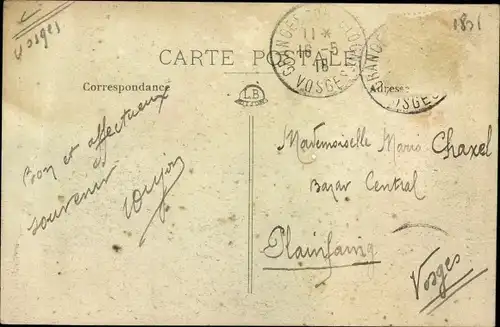 Vosges
1831
CARTE POSTALE
GRANGES
11 *
16 - 5
18
VOSGES
GRANGES
VOSGES
Correspondance
LB
Adresse
Bon et affectueux
souvenir
Mademoiselle Maria Chaxel
Bazar Central
Plainfaing
Vosges